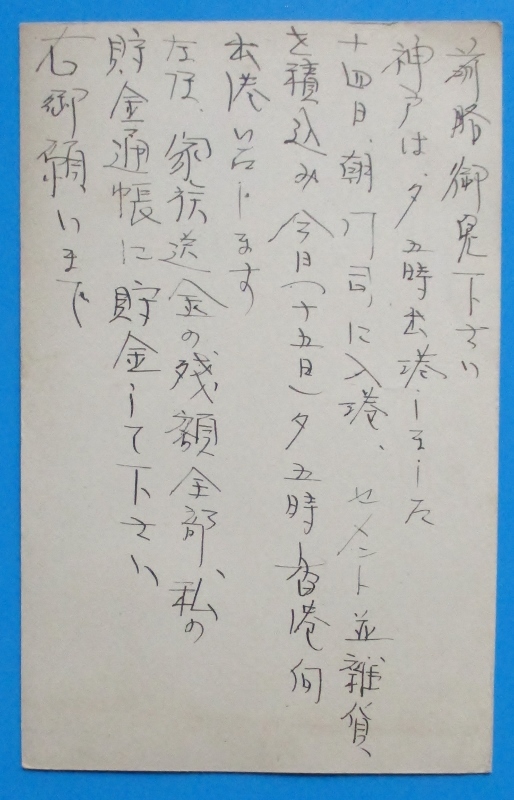 前略御免下さい
神戸は、夕五時出港しました
十四日、朝門司に入港、セメント並雑貨
を積込み今日(十五日)夕五時香港向
出港いたします
なほ、家族送金の残額全部、私の
貯金通帳に貯金して下さい
右御願いまで